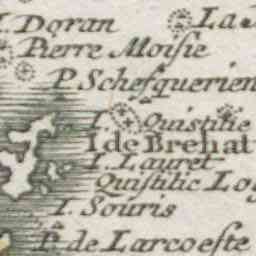 I. Doran
La
Pierre Moisie
P Schesquerien
I. Quistilie
I de Brehat
I. Lauret
Quistilic Lo
I. Souris
P.te de Larcoeste